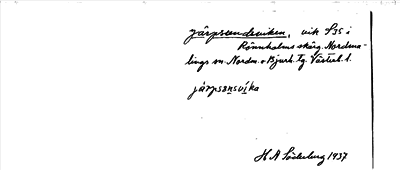 järpsundsviken, vik S35 i
Rönnholms skärg. Nordma-
lings sn. Nordm. o Bjurh. Tg. Västerb. l.
järpsønsvíka
H A Söderberg 1937